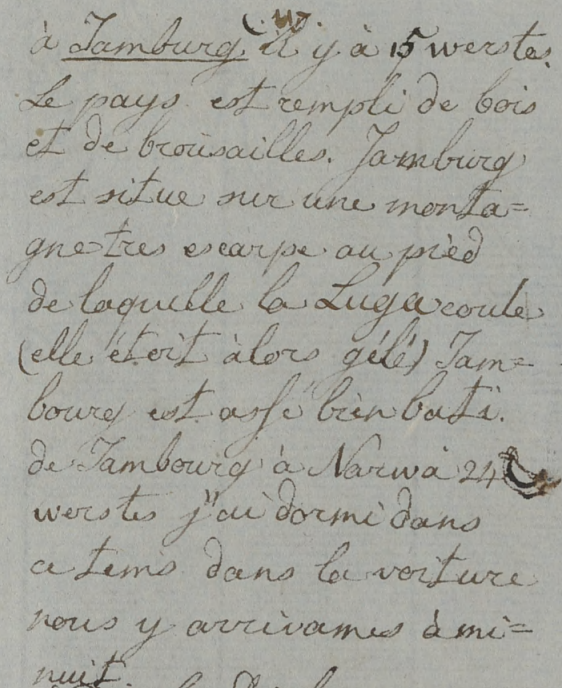 à Jamburg il y à 15 werstes.
Le pays est rempli de bois
et de brousailles. Jamburg
est situe sur une monta=
gne tres escarpe au pièd
de laquelle la Luga coule
(elle étoit àlors gélé) Jam=
bourg est assé bien bati.
de Jambourg à Narwa 24
werstes j'ai dormi dans
ce tems dans la voiture
nous y arrivames à mi=
nuit.